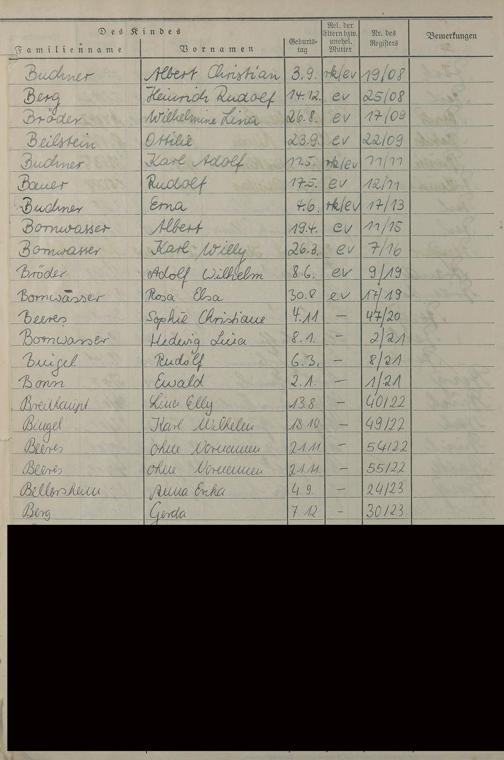 Des Kindes
Familienname Vornamen Geburts-tag Rel. der Eltern bzw. unehel. Mutter Nr. des Registers Bemerkungen
Buchner Albert Christian 3.9. rk/ev 19/08
Berg Heinrich Rudolf 14.12. ev 25/08
Bröder Wilhelmine Lina 26.8. ev 17/09
Beilstein Ottilie 23.9. ev 22/09
Buchner Karl Adolf 11.5. rk/ev 11/11
Bauer Rudolf 17.5. ev 12/11
Buchner Erna 4.6. rk/ev 17/13
Bornwasser Albert 19.4. ev 11/15
Bornwasser Karl Willy 26.3. ev 7/16
Bröder Adolf Wilhelm 8.6. ev 9/19
Bornwasser Rosa Elsa 30.8 ev 17/19
Beeres Sophie Christiane 4.11 – 47/20
Bornwasser Hedwig Luisa 8.1. – 2/21
Bingel Rudolf 6.3. – 8/21
Bonn Ewald 2.1. – 1/21
Breithaupt Lina Elly 13.8. – 40/22
Bingel Karl Wilhelm 18.10 – 49/22
Beeres ohne Vornamen 21.11 – 54/22
Beeres ohne Vornamen 21.11 – 55/22
Bellersheim Anna Erika 4.9. – 24/23
Berg Gerda 7.12. – 30/23